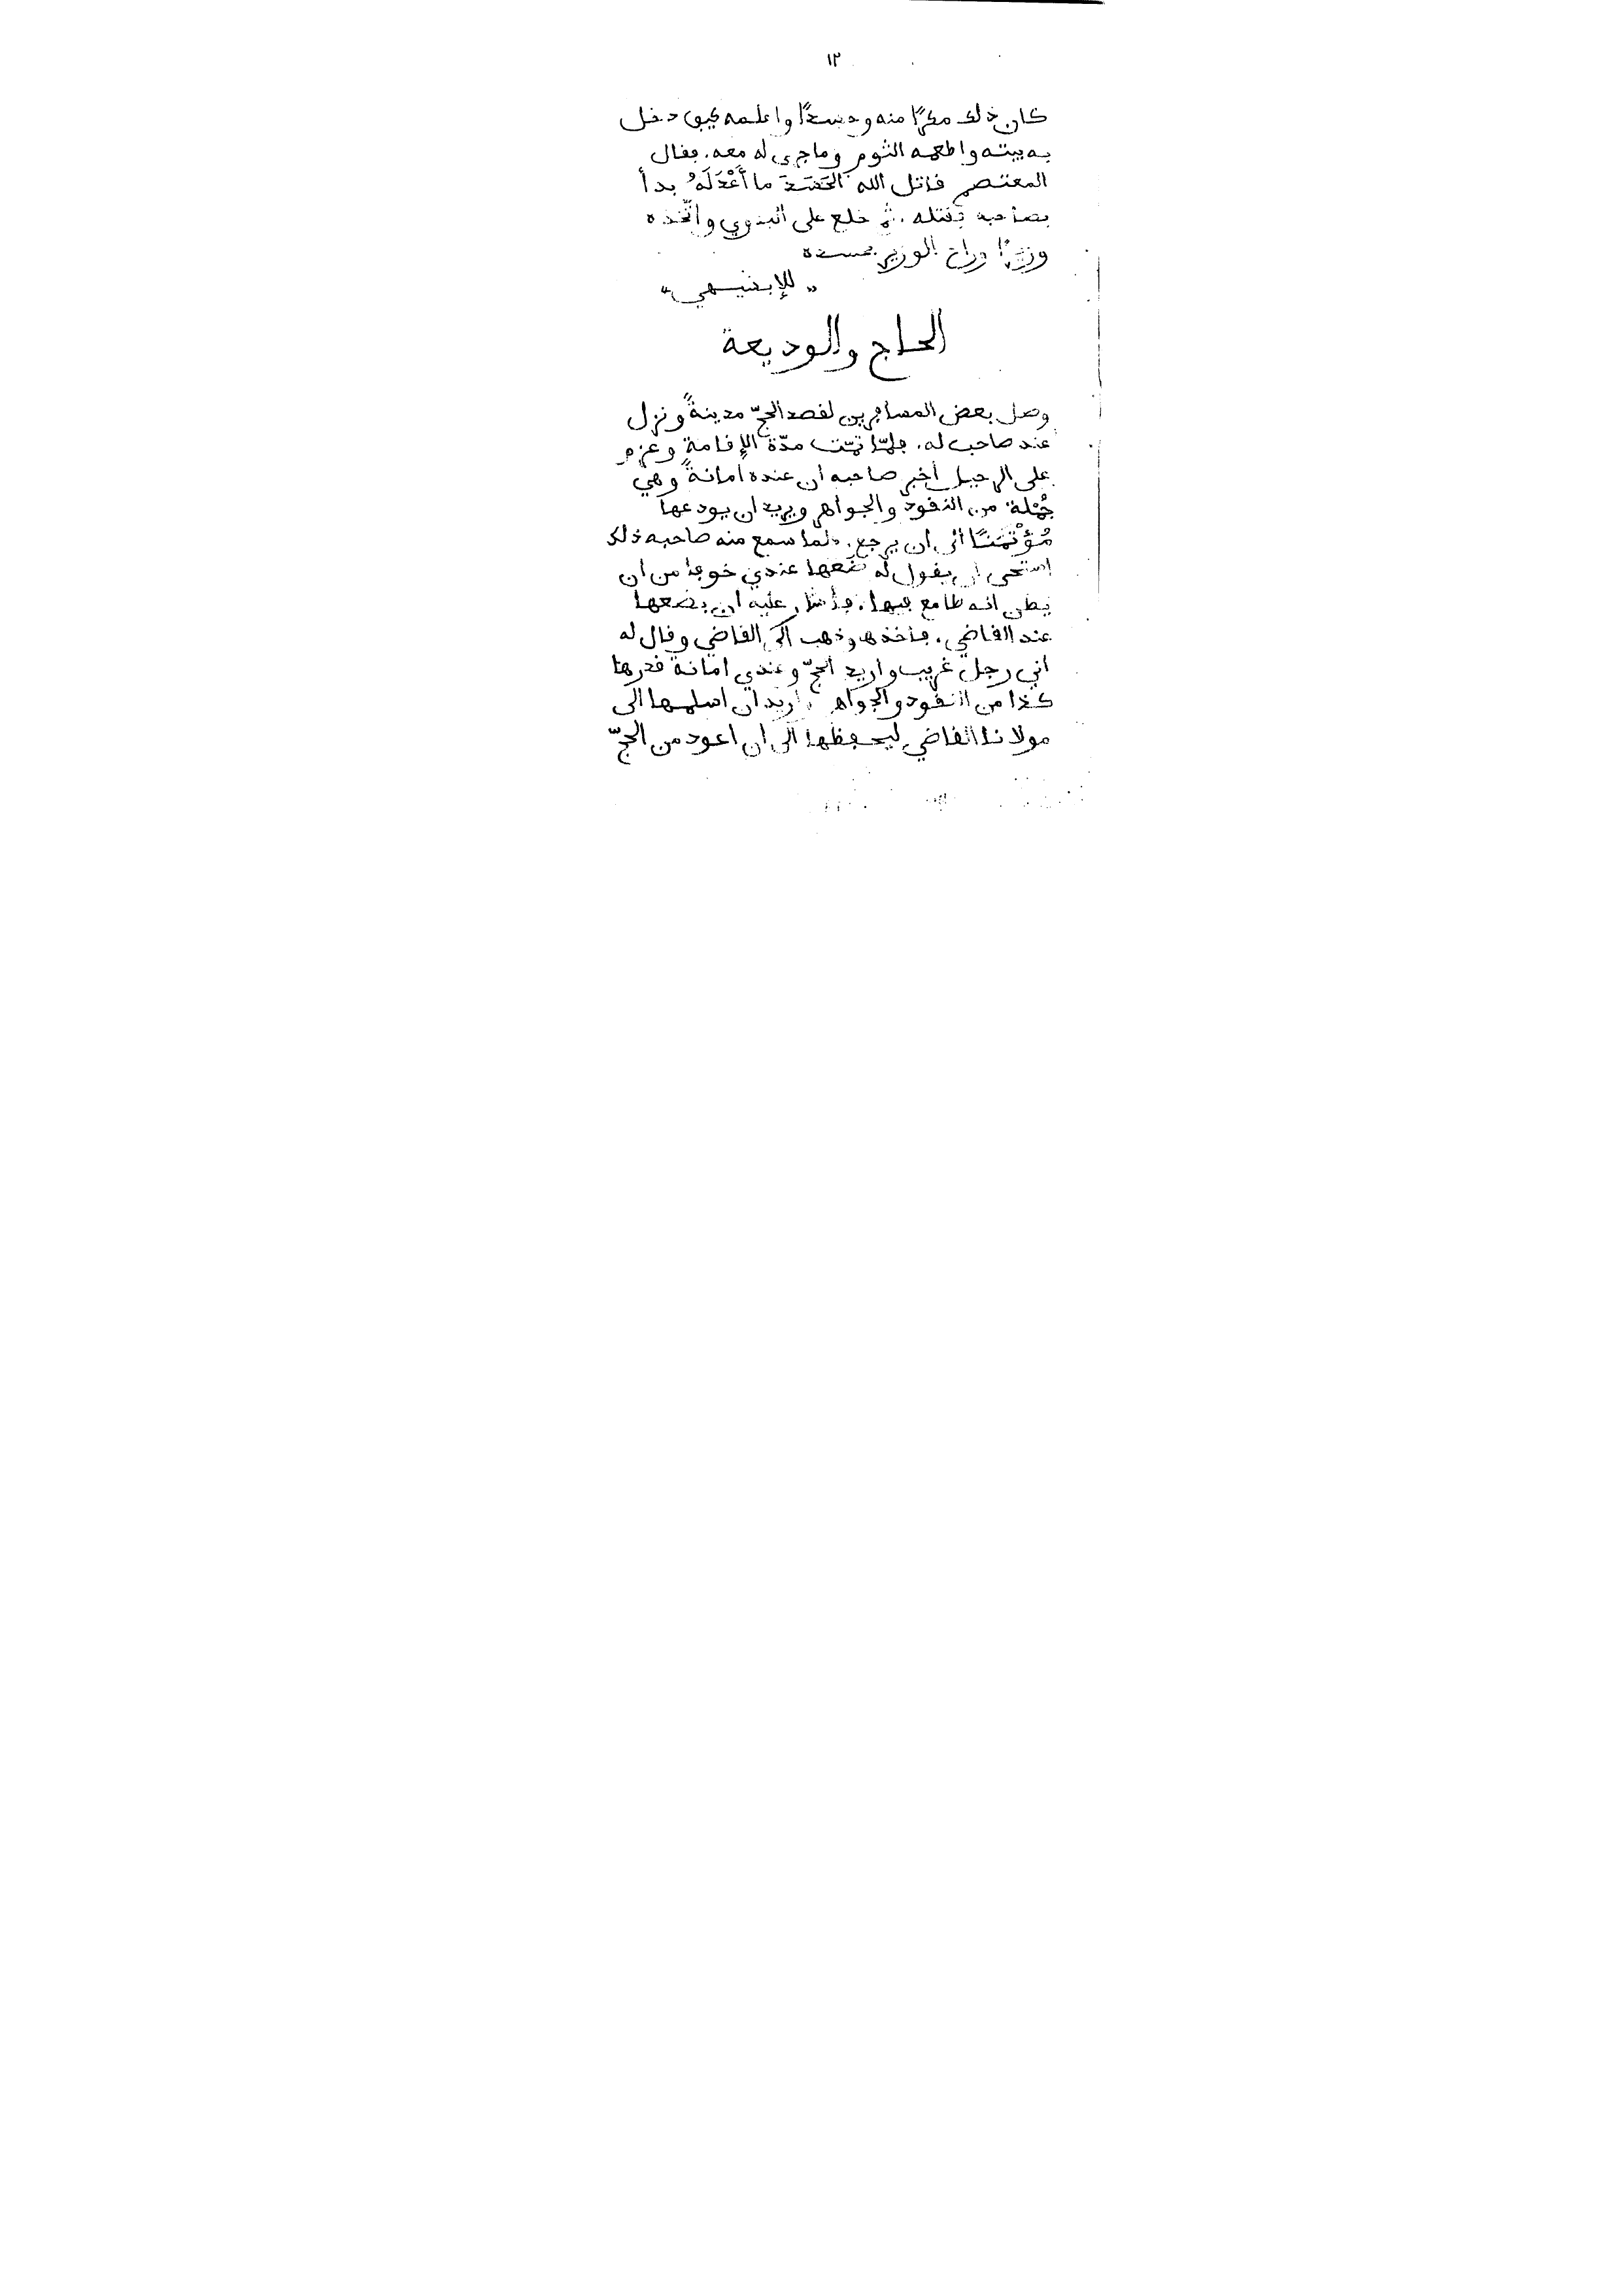 ١٢
كان ذلك مكرًا منه وحسدًا واعلمه كيف دخل
به بيته واطعمه الثوم وما جرى له معه. فقال
المعتصم قاتل الله الحَسَدَ ما أَعْدَلَهُ بدأ
بصاحبه فقتله. ثم خلع على البدوي واتّخذه
وزيرًا وراح الوزير بحسده
« للإبشيهي »
الحاج والوديعة
وصل بعض المسافرين لقصد الحجّ مدينةً ونزل
عند صاحب له. فلمّا تمّت مدّة الإقامةِ وعزم
على الرحيل أخبر صاحبه ان عنده امانةً وهي
جُمْلة من النقود والجواهر ويريد ان يودعها
مُؤْتَمَنًا الى ان يرجع. فلما سمع منه صاحبه ذلك
استحى ان يقول له ضعها عندي خوفا من ان
يظن انه طامع فيها. فأشار عليه ان يضعها
عند القاضي. فاخذها وذهب الى القاضي وقال له
اني رجل غريب واريد الحجّ وعندي امانة قدرها
كذا من النقود والجواهر اريد ان اسلمها الى
مولانا القاضي ليحفظها الى ان اعود من الحجّ